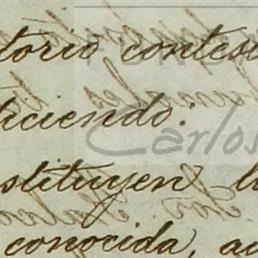 torio contes
diciendo:
Carlos
stituyen l
conocida, a